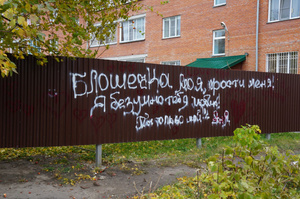 Блошечка моя, прости меня!
Я безумно тебя люблю!
Ты только моя!